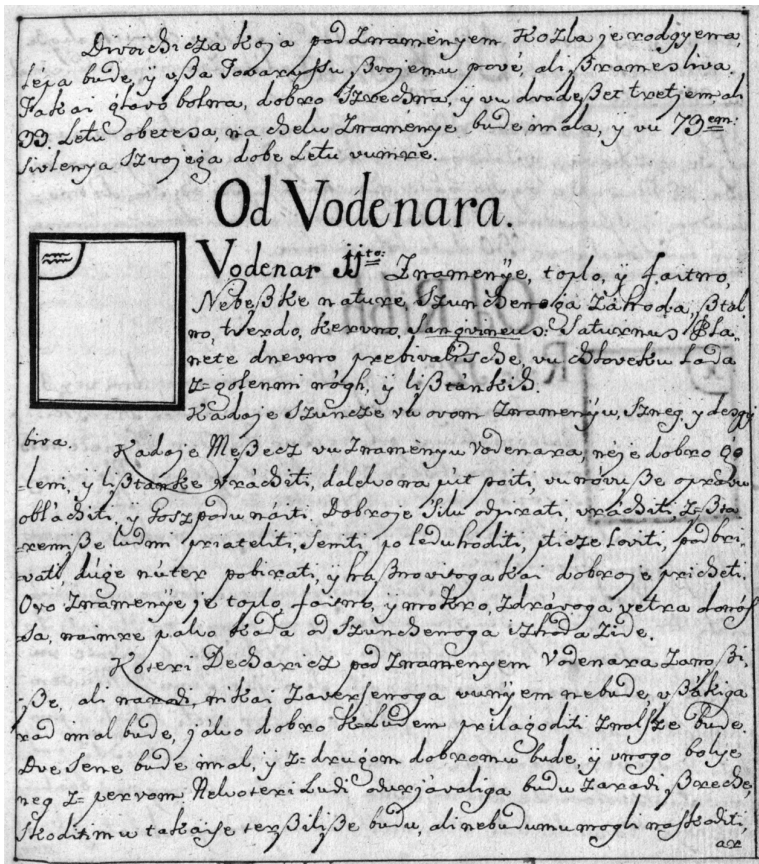 Divoichicza koja pod Znamenyem Kozla je rodgyena,
lépa bude, ÿ vßa Tovarussu ßvojemu pové, ali ßramesliva.
Takai glavo bolna, dobro Szrechna, ÿ vu dvadeßet tretjem, ali
33. Letu obetesa, na chelu Znaménye bude imala, ÿ vu 73em:
sivlenya Szvojega dobe Letu vumre.
Od Vodenara.
Vodenar 11to: Znamenÿe, toplo, ÿ faitno,
Nebeßke nature, Szunchenoga Záhoda, ßtal
no, tverdo, kervno, Sangvineus: Saturnus Pla-
nete dnevno prebivalische, vu chloveku Lada
z=golenmi nógh, ÿ lißtánkih.
Kadaje Szuncze vu ovom Znamenÿu, Szneg, ÿ desgy
biva.
Kadaje Meßecz vu Znaményu Vodenara, néje dobro gó
=leni, ÿ lißtanke vráchiti, daleko na pút poiti, vu nóvuße opravu
obláchiti, ÿ Goszpodu náiti. Dobroje Silu odpirati, vráchiti, z=ßta
=remiße ludmi priateliti, Seniti, po leduhoditi, pticze loviti, podbri-
vati, dúge núter pobirati, ÿ haßnovitoga kai dobroje pricheti.
Ovo Znamenÿe je toplo, faitno, ÿ mokro, zdrávoga vetra donós
=sa, naimre pako kada od Szunchenoga izhoda zide.
Koteri Decharicz pod Znamenyem Vodenara Zanoßi-
ße, ali narodi, nikai Zaversenoga vunÿem nebude, vßákiga
rad imal bude, jako dobro k=Ludem prilagoditi Znalsze bude.
Dve Sene bude imal, ÿ z=drugom dobromu bude, ÿ vnogo bolye
neg z=pervom. Nekoteri Ludi odurjávaliga budu Zaradi ßreche,
skoditimu takaise terßiliße budu, ali nebudumu mogli naskoditi,
ar